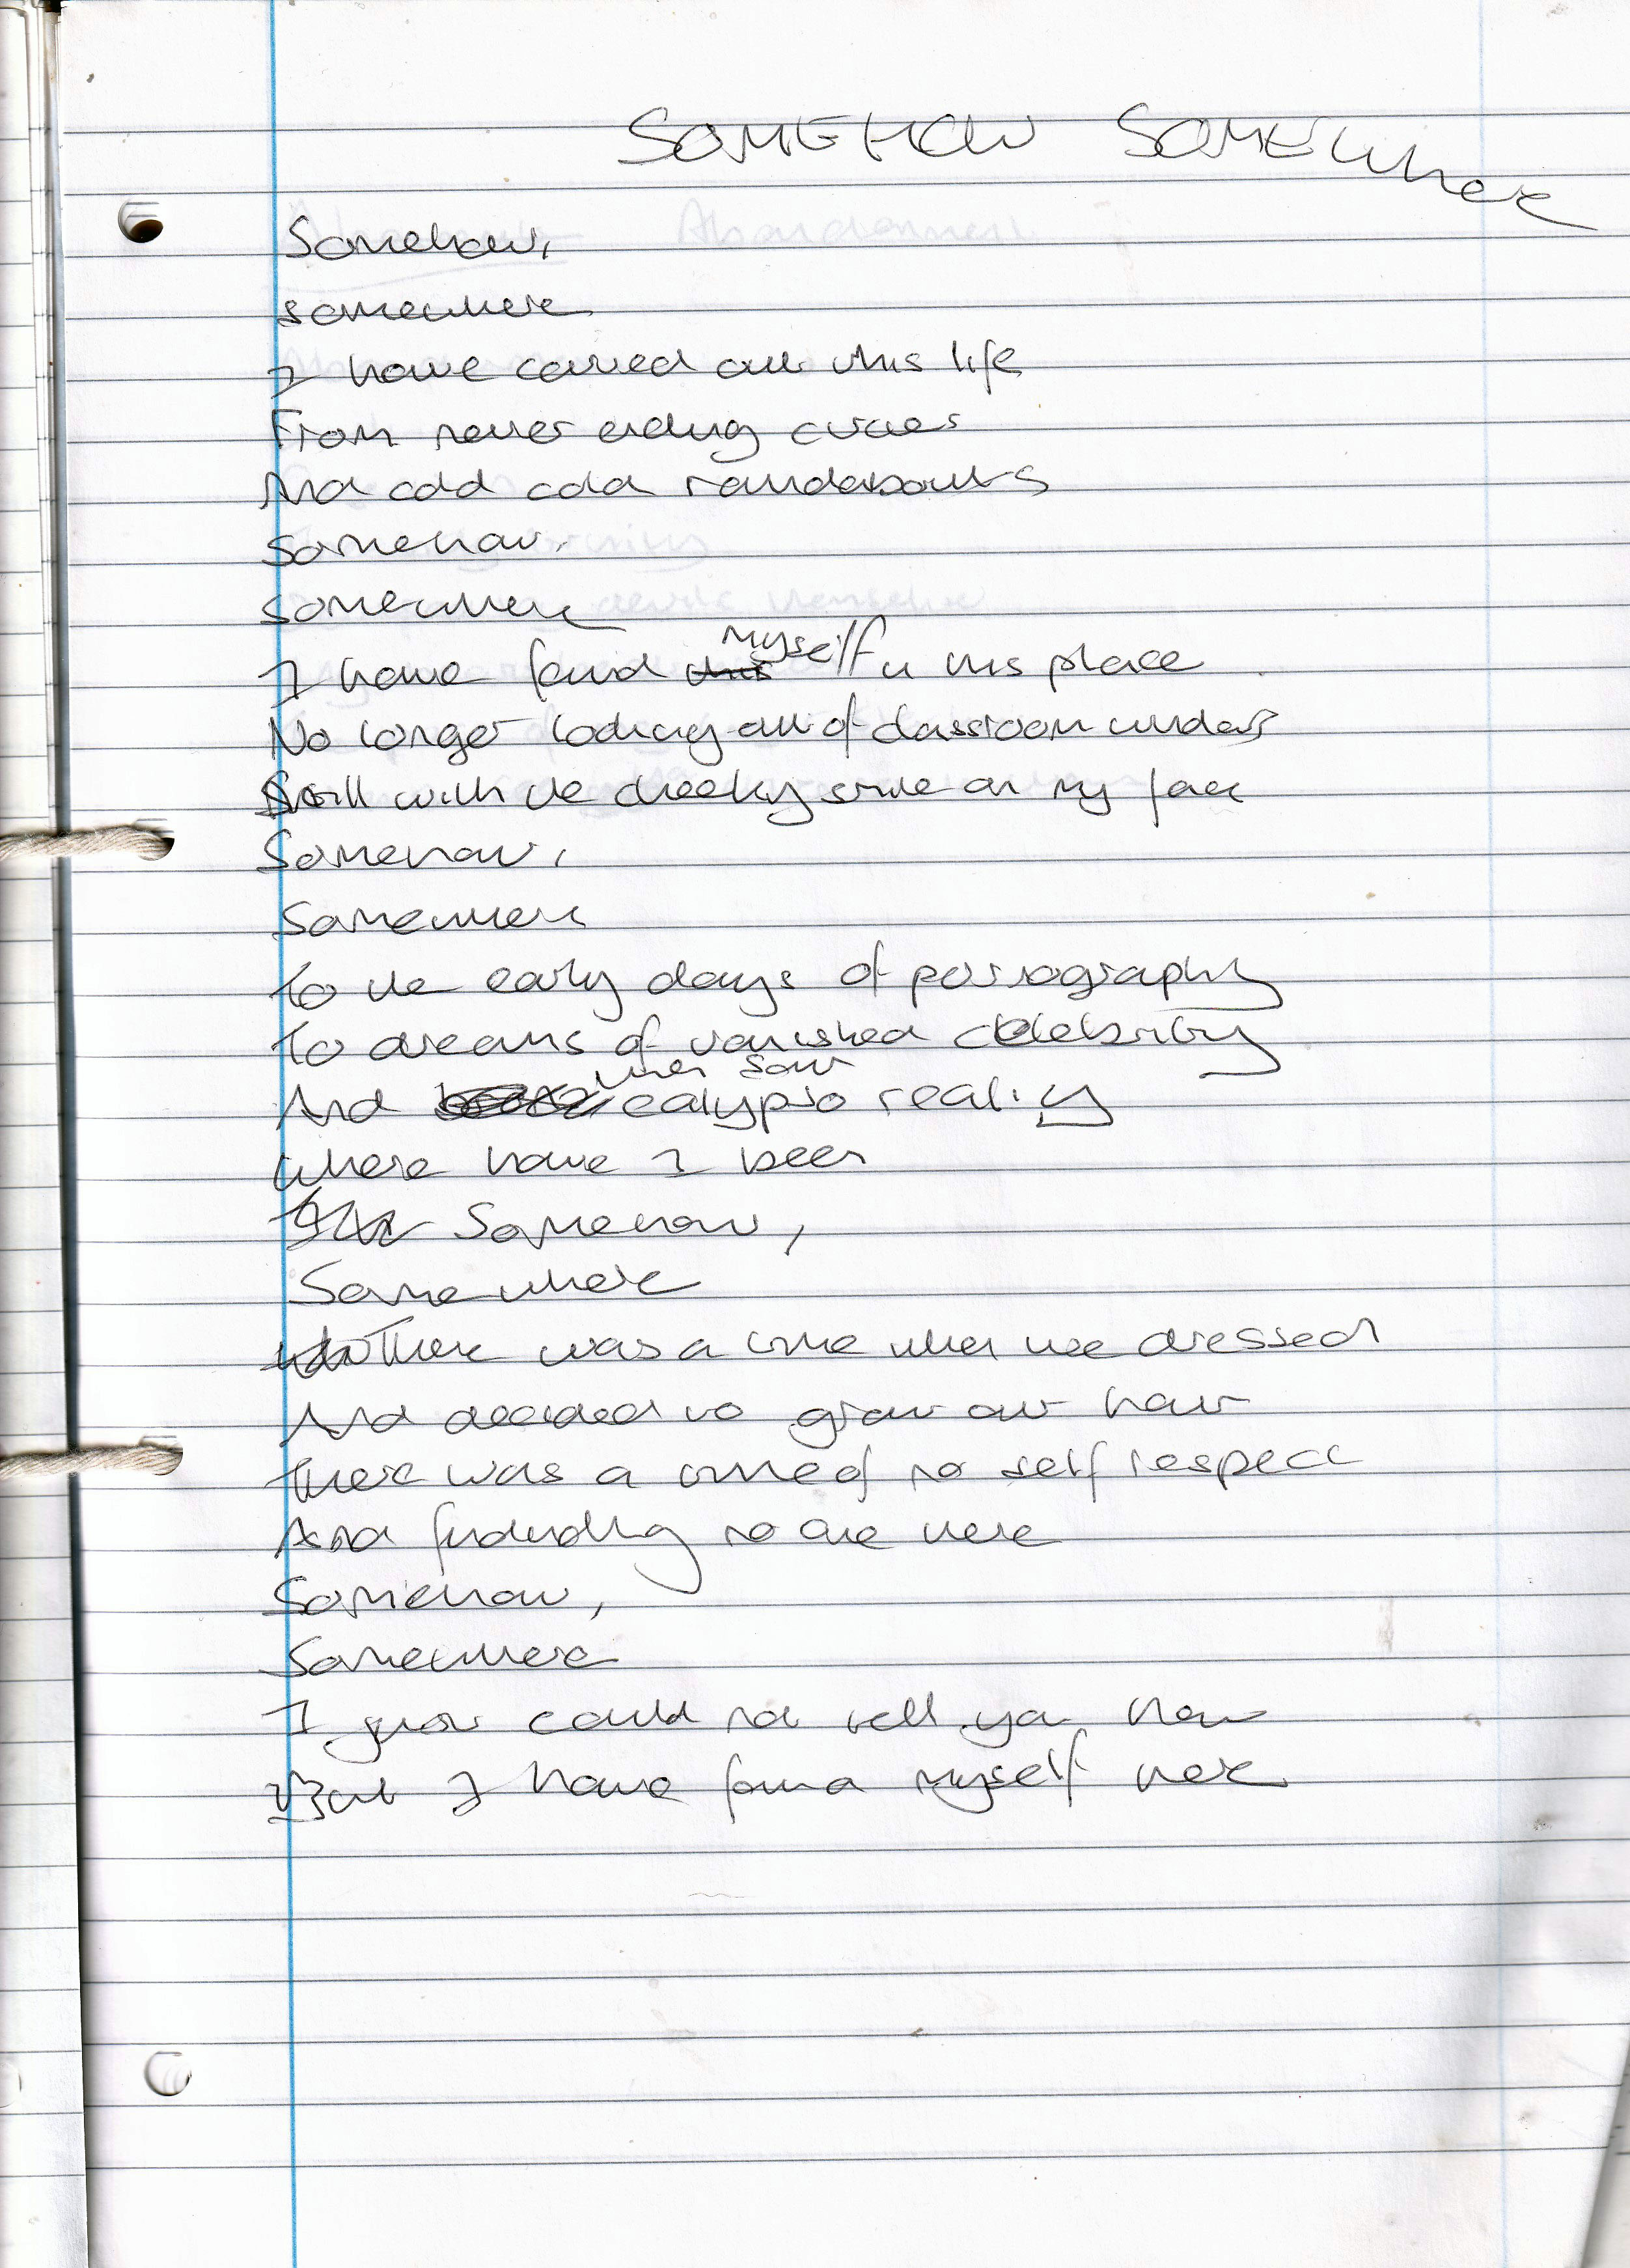 SOMEHOW SOMEWhere
Somehow,
somewhere
I have carved out this life
From never ending circles
And odd cold roundabouts
Somehow,
somewhere
I have found this myself in this place
No longer looking out of classroom windows
Still with the cheeky smile on my face
Somehow,
Somewhere
To the early days of pornography
To dreams of vanished celebrity
And when sour calypso reality
Where have I been
Somehow,
Somewhere
There was a time when we dressed
And decided to grow our hair
There was a time of no self respect
And finding no one here
Somehow,
Somewhere
I could not tell you how
But I have found myself here